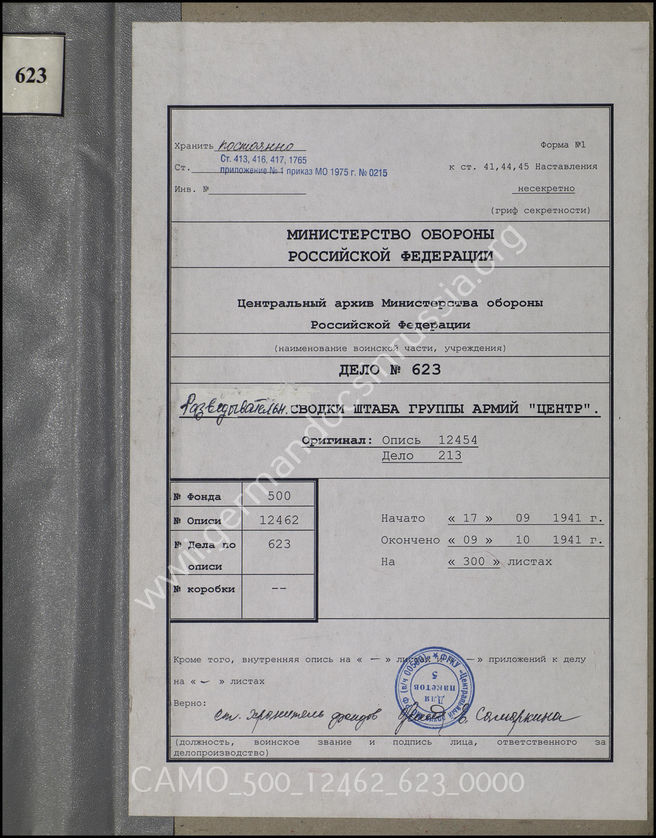 623
Хранить постоянно
Форма №1
Ст. 413, 416, 417, 1765
Ст. приложение № 1 приказ МО 1975 г. № 0215
к ст. 41,44,45 Наставления
Инв. №
несекретно
(гриф секретности)
МИНИСТЕРСТВО ОБОРОНЫ
РОССИЙСКОЙ ФЕДЕРАЦИИ
Центральный архив Министерства обороны
Российской Федерации
(наименование воинской части, учреждения)
ДЕЛО № 623
Разведывательн. СВОДКИ ШТАБА ГРУППЫ АРМИЙ "ЦЕНТР".
Оригинал: Опись 12454
Дело 213
№ Фонда 500
№ Описи 12462
№ Дела по описи 623
№ коробки --
Начато « 17 » 09 1941 г.
Окончено « 09 » 10 1941 г.
На « 300 » листах
Кроме того, внутренняя опись на « — » листах и на « — » приложений к делу
на « — » листах
Верно:
ст. хранитель фондов Самаркина
(должность, воинское звание и подпись лица, ответственного за
делопроизводство)
Для пакетов 5
www.germandocsinrussia.org
CAMO_500_12462_623_0000